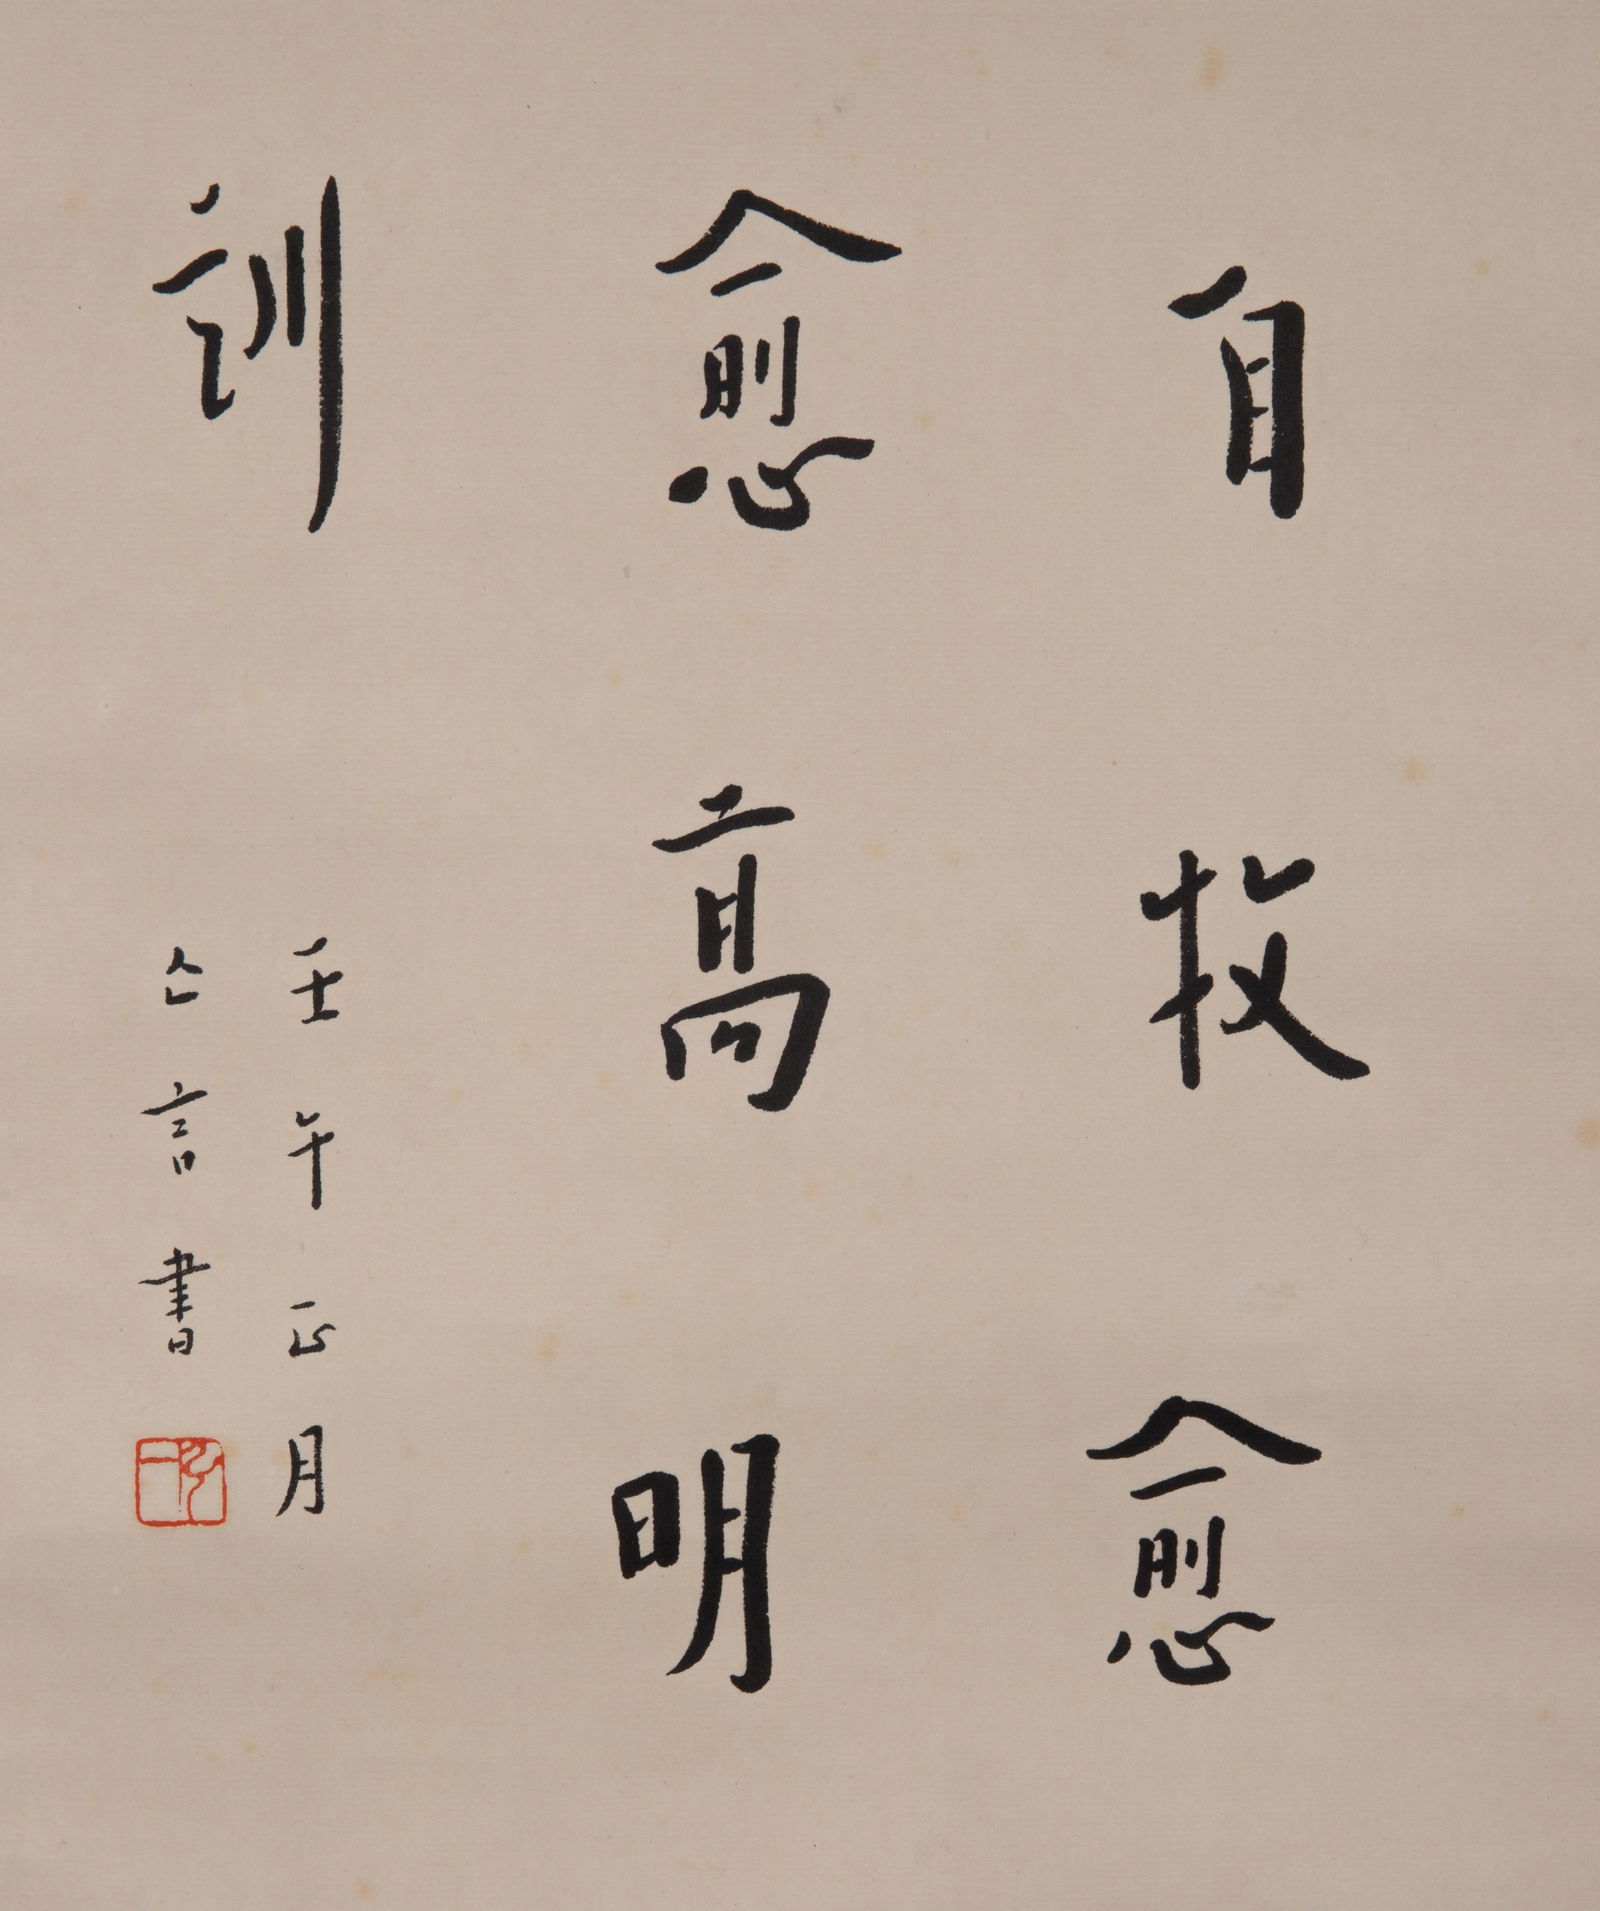 自牧愈
愈高明
訓
壬午正月
亡言書
弘一